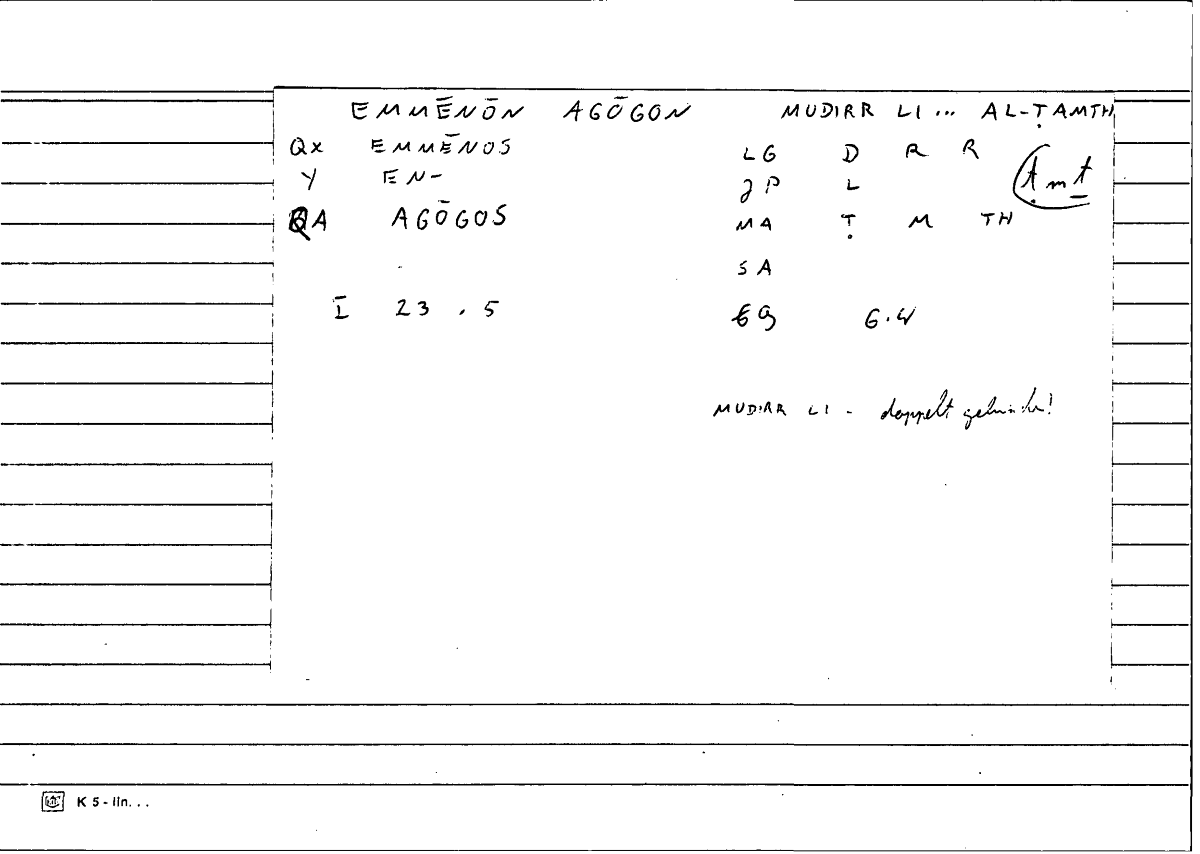 EMMĒNŌN AGŌGON MUDIRR LI... AL-ṬAMTH
QX EMMĒNOS LG D R R
Y EN- JP L ṭmṯ
QA AGŌGOS MA Ṭ M TH
SA
I 23.5 EQ 6.4
MUDIRR LI - doppelt
K 5 - lin...